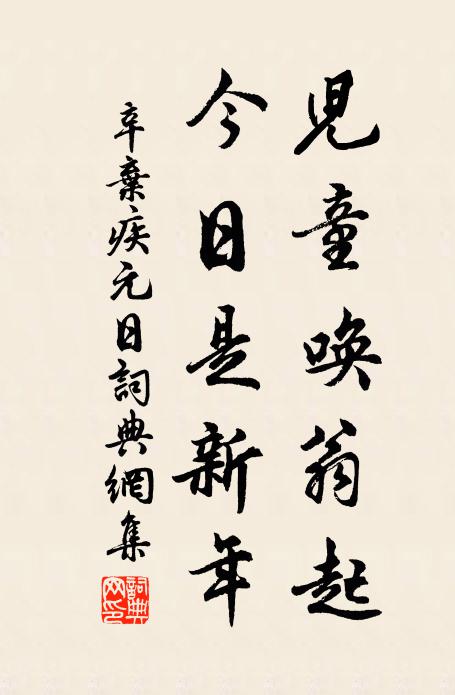 兒童喚翁起
今日是新年
辛棄疾元日詞典網集
詞典
網印